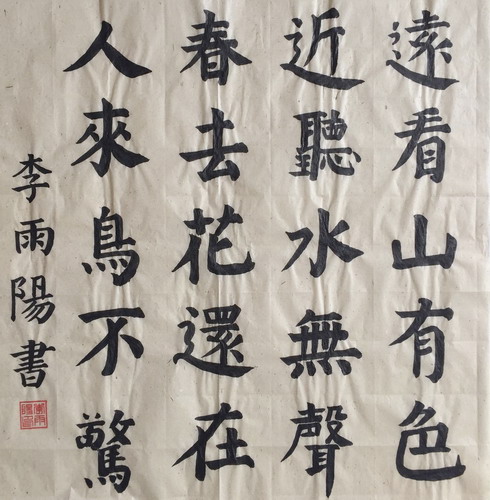 遠看山有色
近聽水無聲
春去花還在
人來鳥不驚
李雨陽書